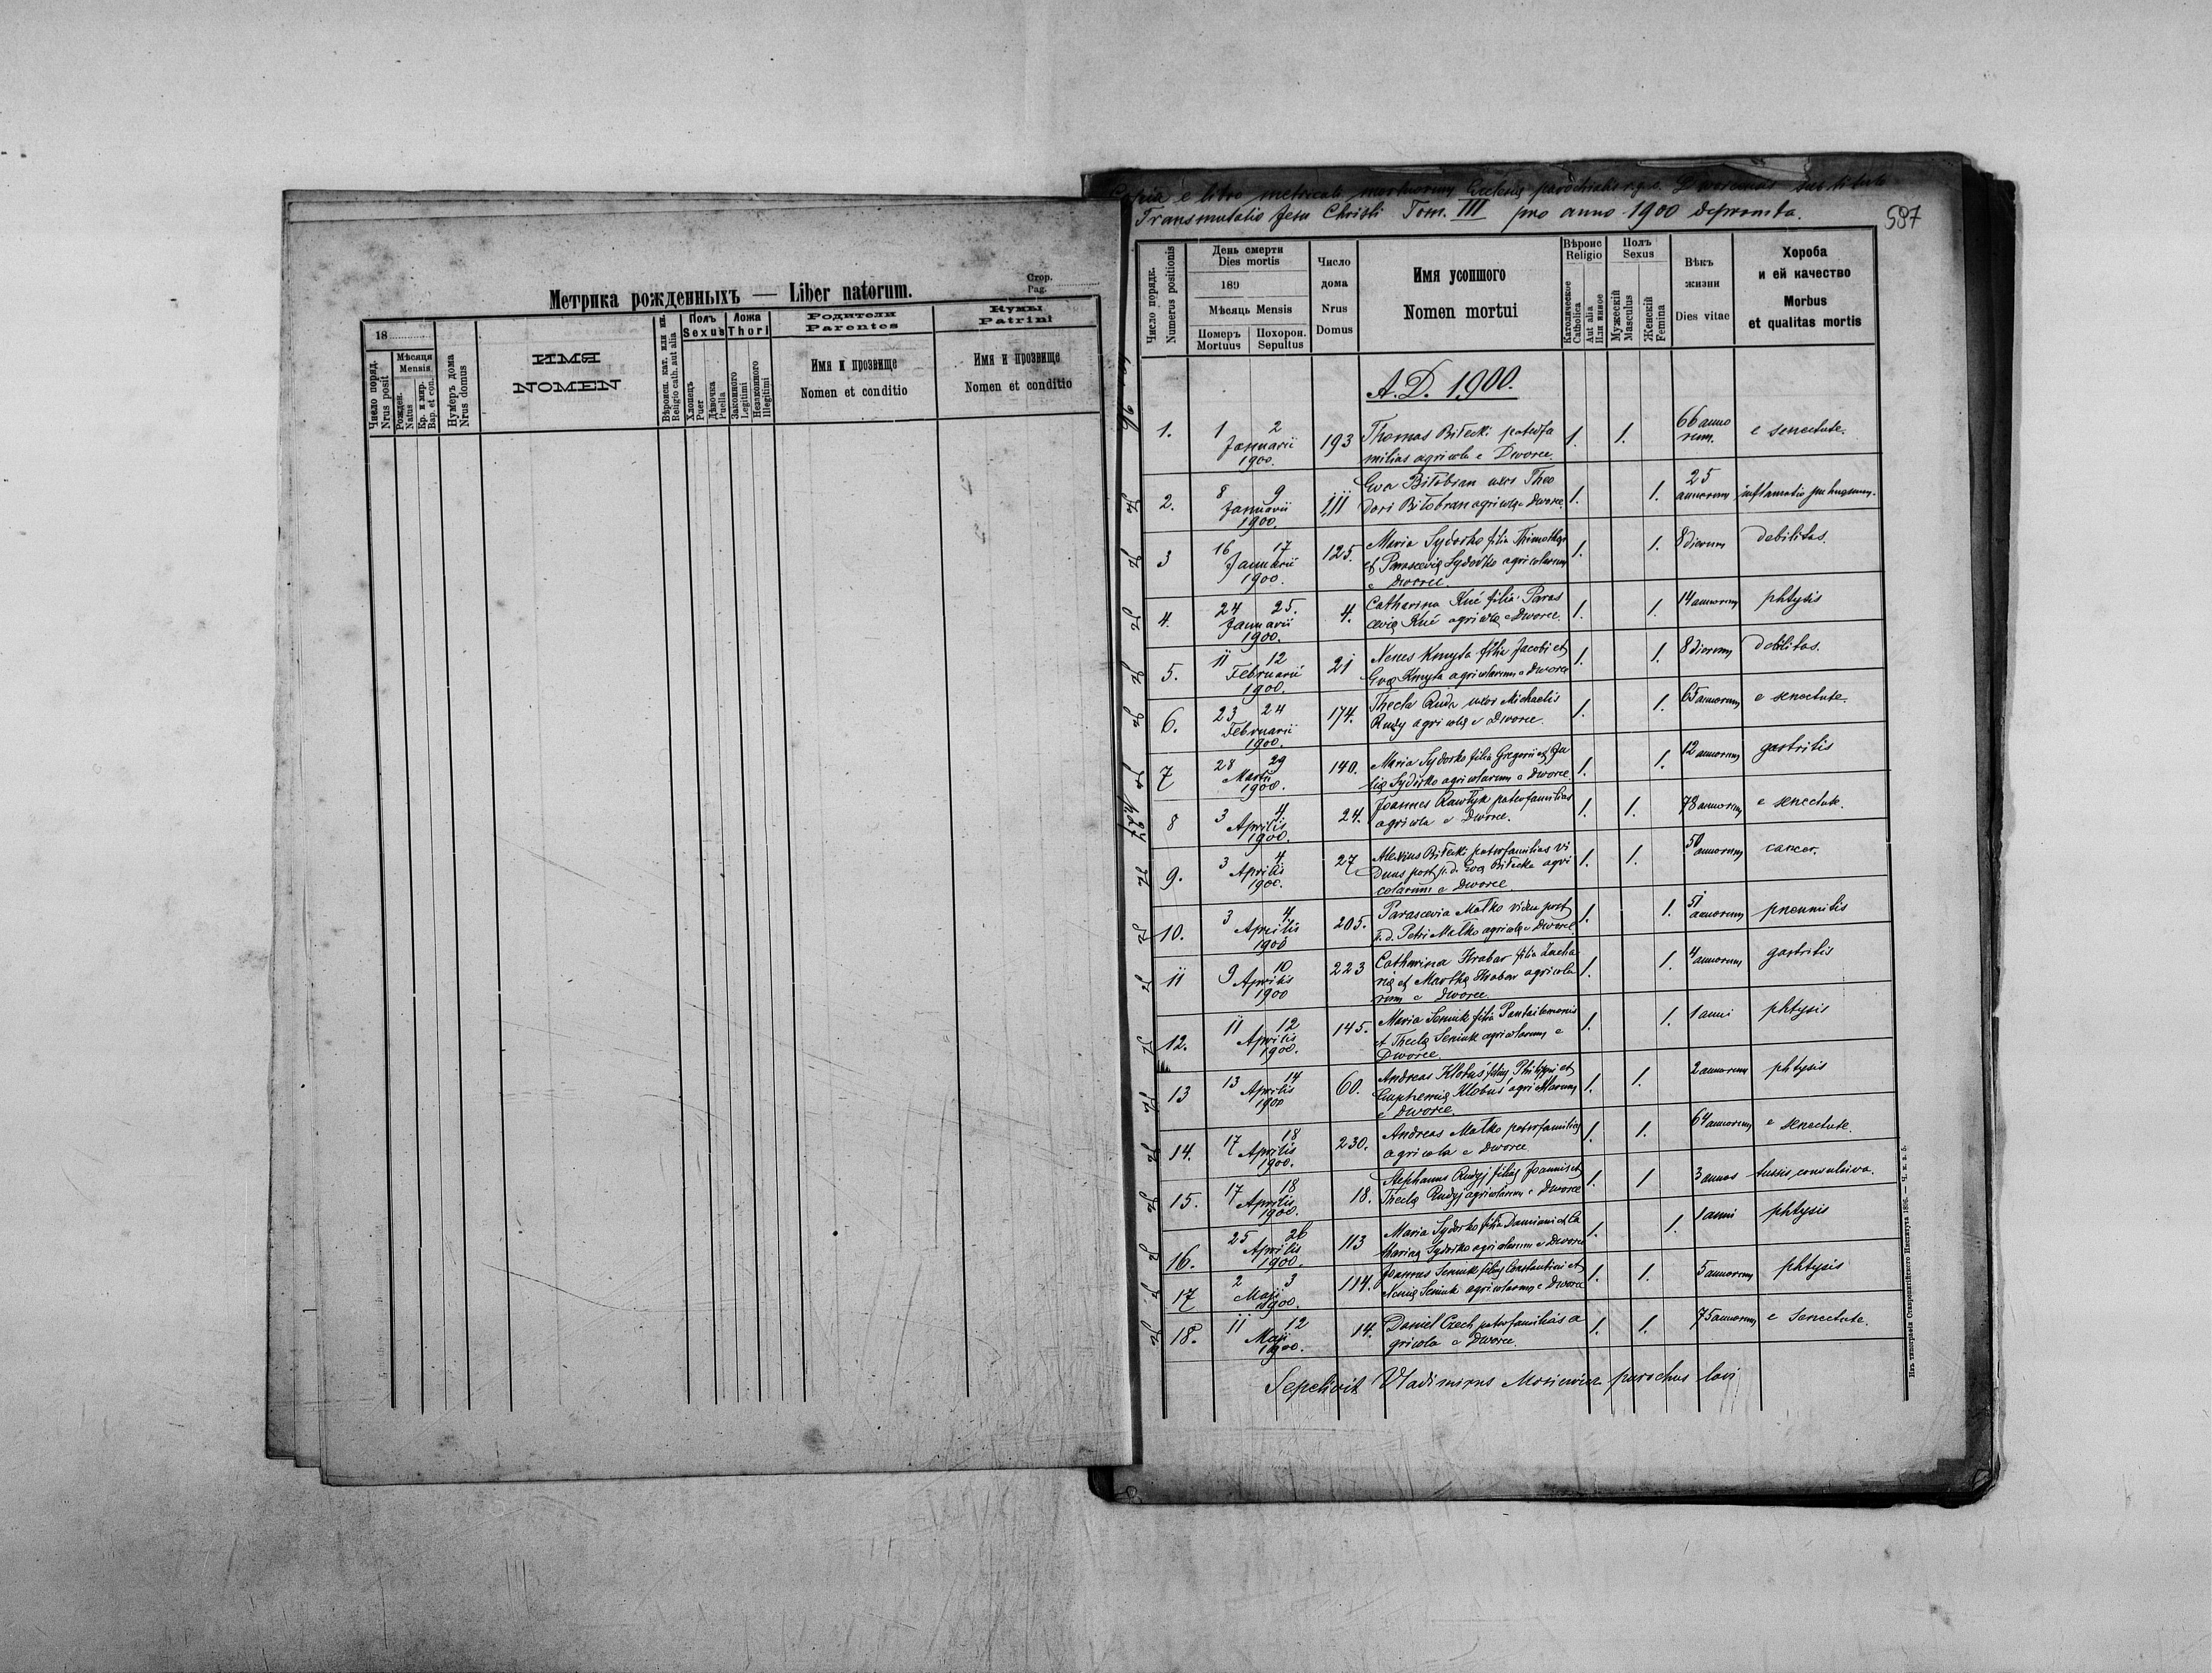 Стор.
Pag.
Метрика рожденныхъ — Liber natorum.
18
Число поряд.
Nrus posit
Мѣсяця
Mensis
Рожден.
Natus
Кр. и мvр.
Bap. et con.
Нумеръ дома
Nrus domus
ИМЯ
NOMEN
Вѣроисп. кат. или ин.
Religio cath. aut alia
Полъ
Sexus
Хлопець
Puer
Дѣвочка
Puella
Ложа
Thori
Законного
Legitimi
Незаконного
Illegitimi
Родители
Parentes
Имя и прозвище
Nomen et conditio
Кумы
Patrini
Имя и прозвище
Nomen et conditio
Copia e libro metricali mortuorum Ecclesiæ parochialis r.g.c. Dworcensis sub titulo
Transmutatio Jesu Christi Tom. III pro anno 1900 deprompta.
587
Число порядк.
Numerus positionis
День смерти
Dies mortis
189
Мѣсяць Mensis
Померъ
Mortuus
Похорон.
Sepultus
Число
дома
Nrus
Domus
Имя усопшого
Nomen mortui
Вѣроис
Religio
Католическое
Catholica
Aut alia
Или инное
Полъ
Sexus
Мужескій
Masculus
Женскій
Femina
Вѣкъ
жизни
Dies vitae
Хороба
и ей качество
Morbus
et qualitas mortis
A. D. 1900.
1. 1 2 Januarii 1900. 193 Thomas Biłecki paterfa 1. 1. 66 anno rum. e senectute.
milias agricola e Dworce.
2. 8 9 Januarii 1900. 111 Eva Biłobran uxor Theo 1. 1. 25 annorum inflamatio pulmonum.
dori Biłobran agricolæ e Dworce.
3 16 17 Januarii 1900. 125. Maria Sydorko filia Thimothei 1. 1. 8 dierum debilitas.
et Parasceviæ Sydorko agricolarum
e Dworce.
4. 24 25. Januarii 1900. 4. Catharina Kuć filia Paras 1. 1. 14 annorum phtysis
ceviæ Kuć agricolæ e Dworce.
5. 11 12 Februarii 1900. 21 Kmyta filia Jacobi et 1. 1. 8 dierum debilitas.
Evæ Kmyta agricolarum e Dworce
6. 23 24 Februarii 1900. 174. Thecla Ruda uxor Michaelis 1. 1. 65 annorum e senectute.
Rudy agricolæ e Dworce.
7 28 29 Martii 1900. 140. Maria Sydorko filia Gregorii et Ju 1. 1. 12 annorum gastritis
liæ Sydorko agricolarum e Dworce.
8 3 4 Aprilis 1900. 24. Joannes Rawłyk paterfamilias 1. 1. 78 annorum e senectute.
agricola e Dworce.
9. 3 4 Aprilis 1900. 27 Alexius Biłecki paterfamilias vi 1. 1. 50 annorum cancer.
duus post p. d. Eva Biłecka agri
colarum e Dworce.
10. 3 4. Aprilis 1900 205. Parascevia Małko vidua post 1. 1. 51 annorum pneumitis
p. d. Petri Małko agricolæ e Dworce.
11 9 10 Aprilis 1900 223 Catherina Hrabar filia Zacha 1. 1. 4 annorum gastritis
riæ et Marthæ Hrabar agricola
rum e Dworce.
12. 11 12 Aprilis 1900. 145. Maria Seniuk filia Pantailemonis 1. 1. 1 anni phtysis
et Theclæ Seniuk agricolarum e
Dworce.
13 13 14 Aprilis 1900 60. Andreas Klobus filius Philippi et 1. 1. 2 annorum phtysis
Euphemiæ Klobus agricolarum
e Dworce.
14. 17 18 Aprilis 1900. 230. Andreas Małko paterfamilias 1. 1. 64 annorum e senectute.
agricola e Dworce
15. 17 18 Aprilis 1900. 18. Stephanus Rudyj filius Joannis et 1. 1 3 annos tussis convulsiva.
Theclæ Rudyj agricolarum e Dworce
16. 25 26 Aprilis 1900. 113 Maria Sydorko filia Damiani et Ca 1. 1. 1 anni phtysis
tharinæ Sydorko agricolarum e Dworce
17 2 3 Maji 1900. 114. Joannes Seniuk filius Constantini et 1. 1. 5 annorum phtysis
Xeniæ Seniuk agricolarum e Dworce
18. 11 12 Maji 1900. 14. Daniel Czech paterfamilias a 1. 1. 75 annorum e senectute.
gricola e Dworce.
Sepelivit Vladimirus parochus loci
Изъ типографіи Ставропигійского Института 1896. — Ч. к. а. 5.